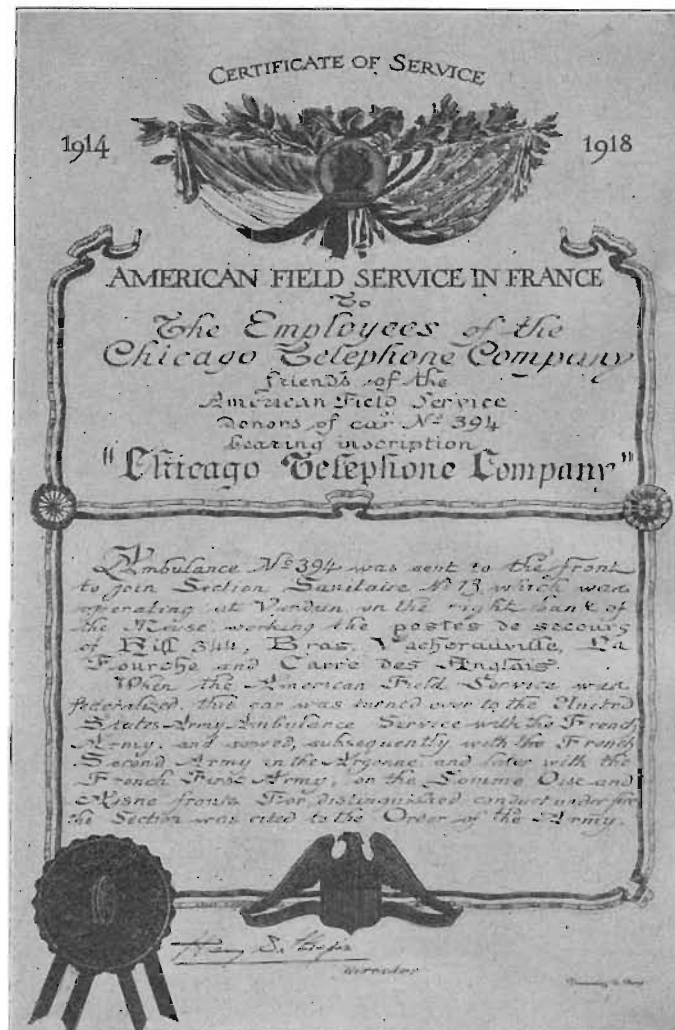 CERTIFICATE OF SERVICE
1914 1918
AMERICAN FIELD SERVICE IN FRANCE
To
The Employees of the
Chicago Telephone Company
friends of the
American Field Service
donors of car Nº 394
bearing inscription
"Chicago Telephone Company"
Ambulance Nº 394 was sent to the front
to join Section Sanitaire Nº 13 which was
operating at Verdun on the right bank of
the Meuse, working the postes de secours
of Hill 344, Bras, Vacherauville, La
Fourche and Carré des Anglais.
When the American Field Service was
federalized, this car was turned over to the United
States Army Ambulance Service with the French
Army, and served, subsequently with the French
Second Army in the Argonne, and later with the
French First Army, on the Somme Oise and
Aisne fronts. For distinguished conduct under fire
the Section was cited to the Order of the Army.
Director